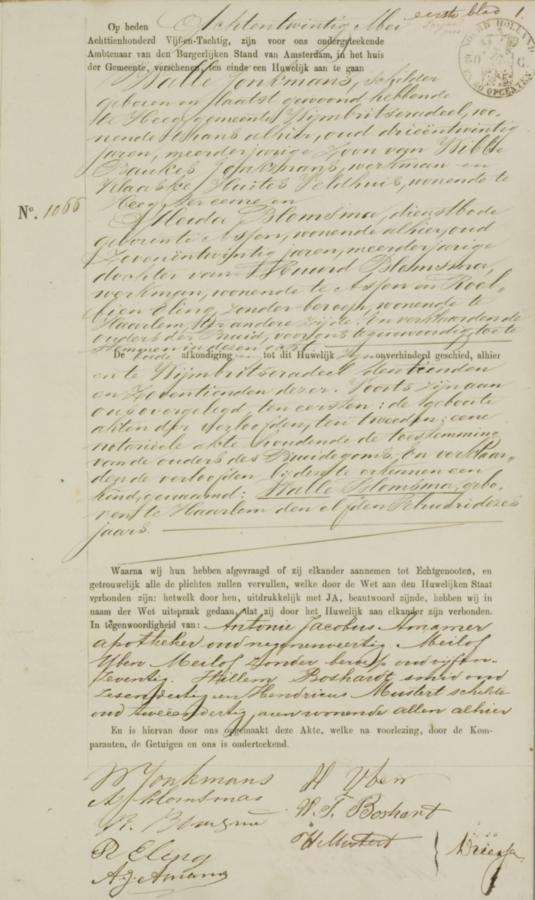 eerste blad 1.
Op heden Achtentwintig Mei
Achttienhonderd Vijf-en-Tachtig, zijn voor ons ondergeteekende
Ambtenaar van den Burgerlijken Stand van Amsterdam, in het huis
der Gemeente, verschenen, ten einde een Huwelijk aan te gaan
Walle Jonkmans, schilder
geboren en laatst gewoond hebbende
te Heeg, gemeente Wijmbritseradeel, wo-
nende thans alhier, oud drieëntwintig
jaren, meerderjarige Zoon van Wibbe
Baukes Jonkmans, werkman en
Klaaske Huites Veldhuis, wonende te
Heeg, ter eene en
No. 1066
Blomsma, dienstbode
geboren te Assen, wonende alhier, oud
Zevenëntwintig jaren, meerderjarige
dochter van Blomsma,
werkman, wonende te Assen en Roel-
Eling, zonder beroep, wonende te
Haarlem, ter andere zijde. En verklaarden de
ouders der Bruid, voor ons tegenwoordig, toe te
stemmen in deze echt.
De beide afkondigingen tot dit Huwelijk zijn onverhinderd geschied, alhier
en te Wijmbritseradeel den tienden
en Zeventienden dezer. Voorts zijn aan
ons overgelegd, ten eersten: de geboorte
akten der verloofden, ten tweeden: eene
notariëele akte houdende de toestemming
van de ouders des Bruidegoms. En verklaar-
den de verloofden bij deze te erkennen een
kind, genaamd: Walle Blomsma, gebo-
ren te Haarlem den elfden Februari dezes
jaars.
Waarna wij hun hebben afgevraagd of zij elkander aannemen tot Echtgenooten, en
getrouwelijk alle de plichten zullen vervullen, welke door de Wet aan den Huwelijken Staat
verbonden zijn: hetwelk door hen, uitdrukkelijk met JA, beantwoord zijnde, hebben wij in
naam der Wet uitspraak gedaan, dat zij door het Huwelijk aan elkander zijn verbonden.
In tegenwoordigheid van: Antonie Jacobus
apotheker oud negenenveertig, Meilof
Yben Meilof zonder beroep oud vijfen-
zeventig, Willem Boshardt, smid oud
zesendertig en Hendricus Mustert
oud tweeëndertig jaren wonende allen alhier
En is hiervan door ons opgemaakt deze Akte, welke na voorlezing, door de Kom-
paranten, de Getuigen en ons is onderteekend.
W Jonkmans
A Blomsma
R. Eleng
M Yben
W. F. Boshart
H Mustert